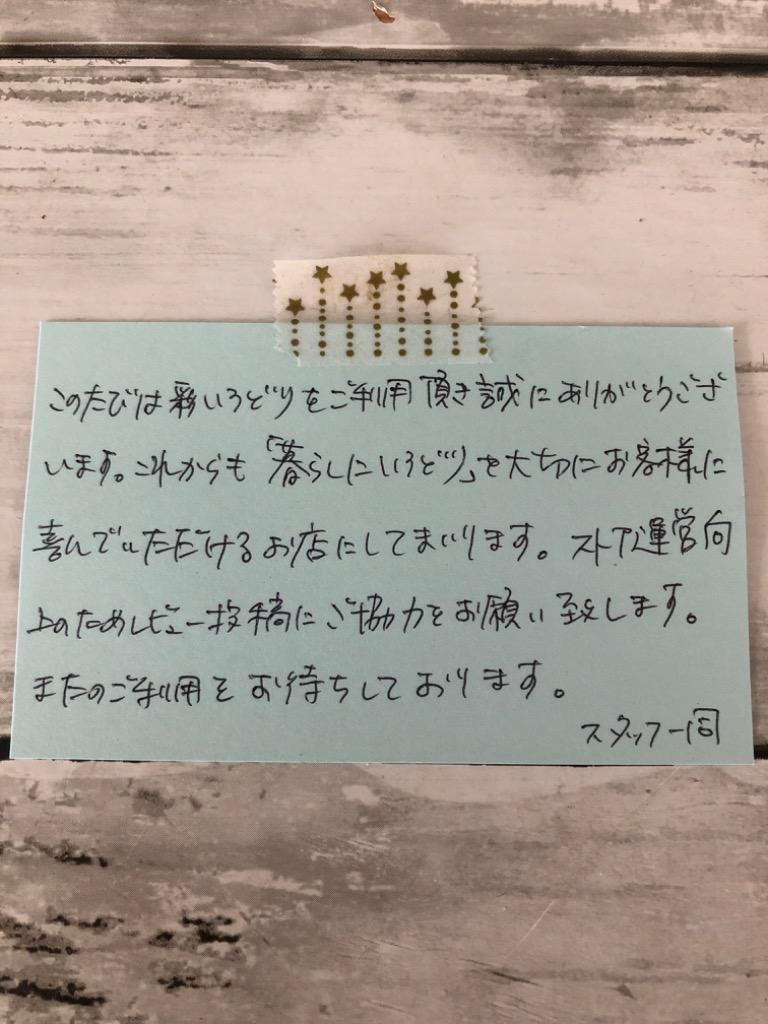 このたびは彩いろどりをご利用頂き誠にありがとうござ
います。これからも「暮らしにいろどり」を大切にお客様に
喜んでいただけるお店にしてまいります。ストア運営向
上のためレビュー投稿にご協力をお願い致します。
またのご利用をお待ちしております。
スタッフ一同